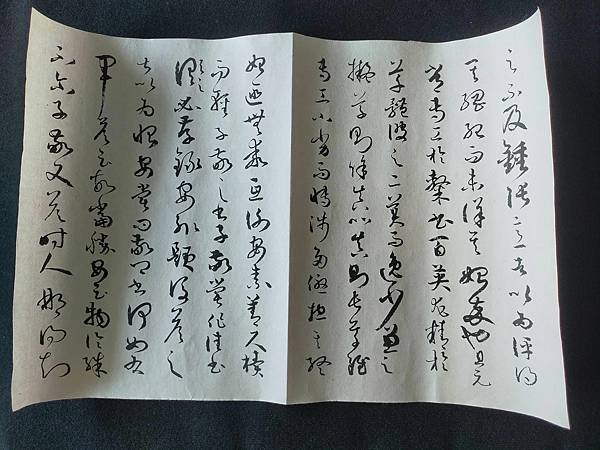 之不及鍾張意者以為評得
其綱紀而未詳其始卒也且元
常專工於隸書百英尤精於
草體彼之二美而逸少兼之
擬草則餘真比真則長草雖
專工小劣而博涉多優揔其終
始匪無乖互謝安素善尺牘
而輕子敬之書子敬嘗作佳書
與之謂必存錄安輒題後答之
甚以為恨安嘗問敬卿書何如右
軍答云故當勝安云物論殊
不爾子敬又答時人那得知